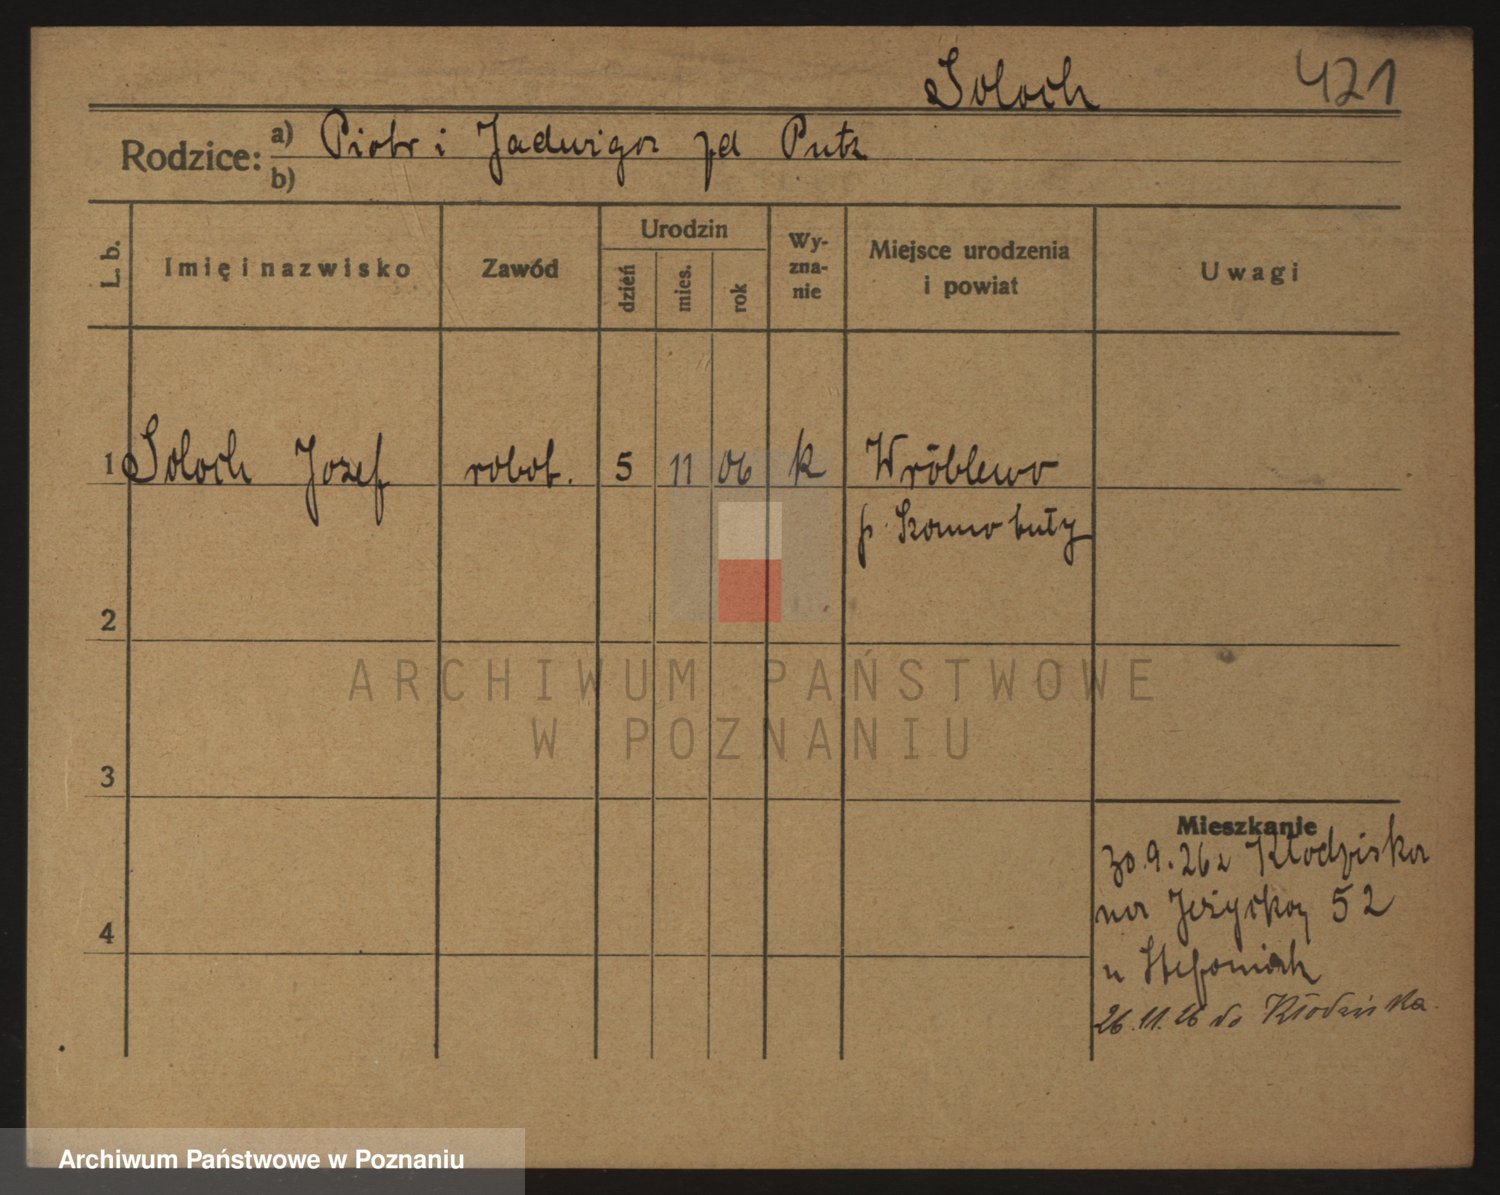 Soloch 421
Rodzice: a) Piotr i Jadwiga zd Putz
b)
L. b. Imię i nazwisko Zawód Urodzin dzień mies. rok Wy-zna-nie Miejsce urodzenia i powiat Uwagi
1 Soloch Jozef robot. 5 11 06 k Wróblewo
p. Szamotuły
2
ARCHIWUM PAŃSTWOWE
W POZNANIU
3
Mieszkanie
30.9.26 z Kłodziska
na Jeżycką 52
4
u Stefaniak
26.11.26 do Kłodziska
Archiwum Państwowe w Poznaniu